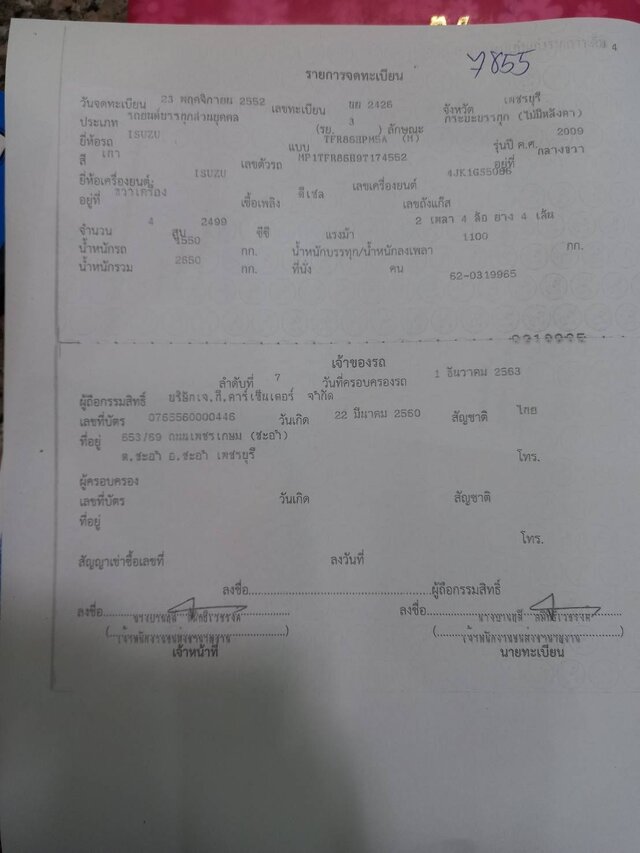 7855
4
รายการจดทะเบียน
วันจดทะเบียน 23 พฤศจิกายน 2552 เลขทะเบียน 2426 จังหวัด เพชรบุรี
ประเภท รถยนต์บรรทุกส่วนบุคคล (รย. 3 ) ลักษณะ กระบะบรรทุก (ไม่มีหลังคา)
ยี่ห้อรถ ISUZU แบบ TFR86HPM5A (M) รุ่นปี ค.ศ. 2009
สี เทา เลขตัวรถ MP1TFR86H9T174552 อยู่ที่ กลางขวา
ยี่ห้อเครื่องยนต์ ISUZU เลขเครื่องยนต์ 4JK1GS5086
อยู่ที่ ขวาเครื่อง เชื้อเพลิง ดีเซล เลขถังแก๊ส
จำนวน 4 สูบ 2499 ซีซี แรงม้า 2 เพลา 4 ล้อ ยาง 4 เส้น
น้ำหนักรถ 1550 กก. น้ำหนักบรรทุก/น้ำหนักลงเพลา 1100 กก.
น้ำหนักรวม 2650 กก. ที่นั่ง คน
62-0319965
เจ้าของรถ
ลำดับที่ 7 วันที่ครอบครองรถ 1 ธันวาคม 2563
ผู้ถือกรรมสิทธิ์ บริษัทเจ.ที.คาร์เซ็นเตอร์ จำกัด
เลขที่บัตร 0765560000446 วันเกิด 22 มีนาคม 2560 สัญชาติ ไทย
ที่อยู่ 853/69 ถนนเพชรเกษม (ชะอำ)
ต.ชะอำ อ.ชะอำ เพชรบุรี โทร.
ผู้ครอบครอง
เลขที่บัตร วันเกิด สัญชาติ
ที่อยู่
โทร.
สัญญาเช่าซื้อเลขที่ ลงวันที่
ลงชื่อ ผู้ถือกรรมสิทธิ์
ลงชื่อ ลงชื่อ
เจ้าพนักงานขนส่งชำนาญงาน เจ้าพนักงานขนส่งชำนาญงาน
เจ้าหน้าที่ นายทะเบียน